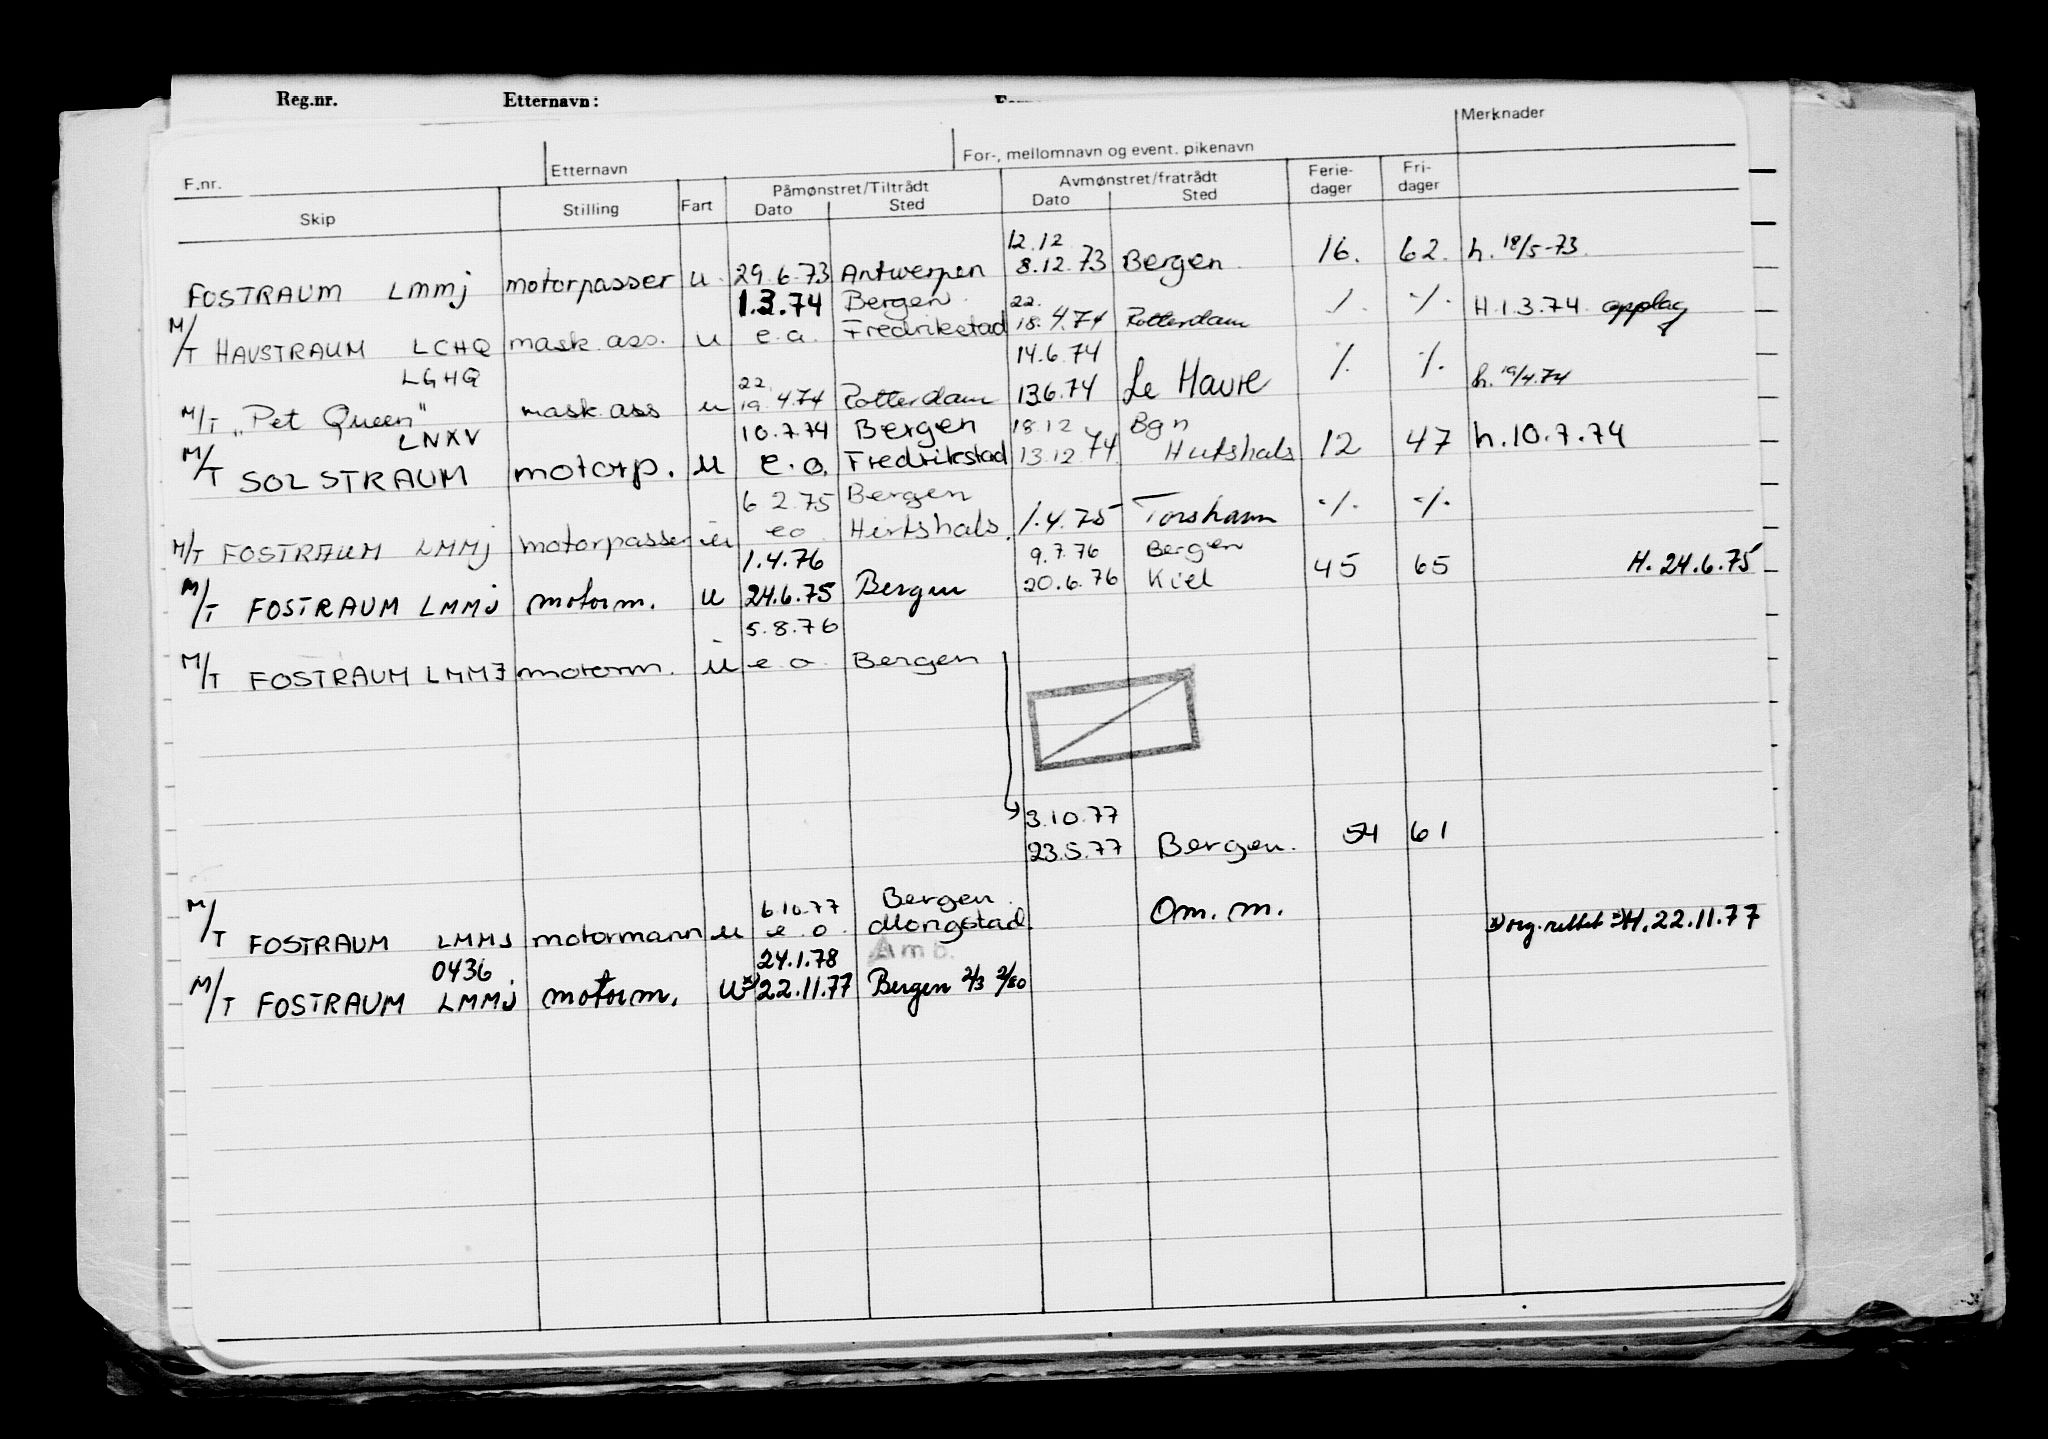 Reg.nr. Etternavn:
Merknader
F.nr. Etternavn For-, mellomnavn og event. pikenavn
Skip Stilling Fart Påmønstret/Tiltrådt Dato Sted Avmønstret/fratrådt Dato Sted Ferie-dager Fri-dager
12.12
FOSTRAUM LMMJ motorpasser u. 29.6.73 Antwerpen 8.12.73 Bergen 16. 62. h. 18/5-73.
1.3.74 Bergen 22.
M/T HAVSTRAUM LCHQ mask. ass. u e.o. Fredrikstad 18.4.74 Rotterdam ·/. ·/. H.1.3.74 opplag
LGHQ 22 14.6.74
M/T „Pet Queen" mask ass u 19.4.74 Rotterdam 13.6.74 Le Havre ·/. ·/. h. 19/4.74
LNXV 10.7.74 Bergen 18.12 Bgn
M/T SOLSTRAUM motorp. u e.o. Fredrikstad 13.12.74 Hirtshals 12 47 h.10.7.74
6.2.75 Bergen
M/T FOSTRAUM LMMJ motorpasser u eo. Hirtshals. 1.4.75 Torshavn ·/. ·/.
1.4.76 9.7.76 Bergen
M/T FOSTRAUM LMMJ motorm. u 24.6.75 Bergen 20.6.76 Kiel 45 65 H. 24.6.75
5.8.76
M/T FOSTRAUM LMMJ motorm. u e.o. Bergen
3.10.77
23.5.77 Bergen. 54 61
6.10.77 Bergen.
M/T FOSTRAUM LMMJ motormann u e.o. Mongstad Om. m. x) org. rettet =) H. 22.11.77
0436 24.1.78 Amb.
M/T FOSTRAUM LMMJ motorm. u x) 22.11.77 Bergen 2/3 2/80